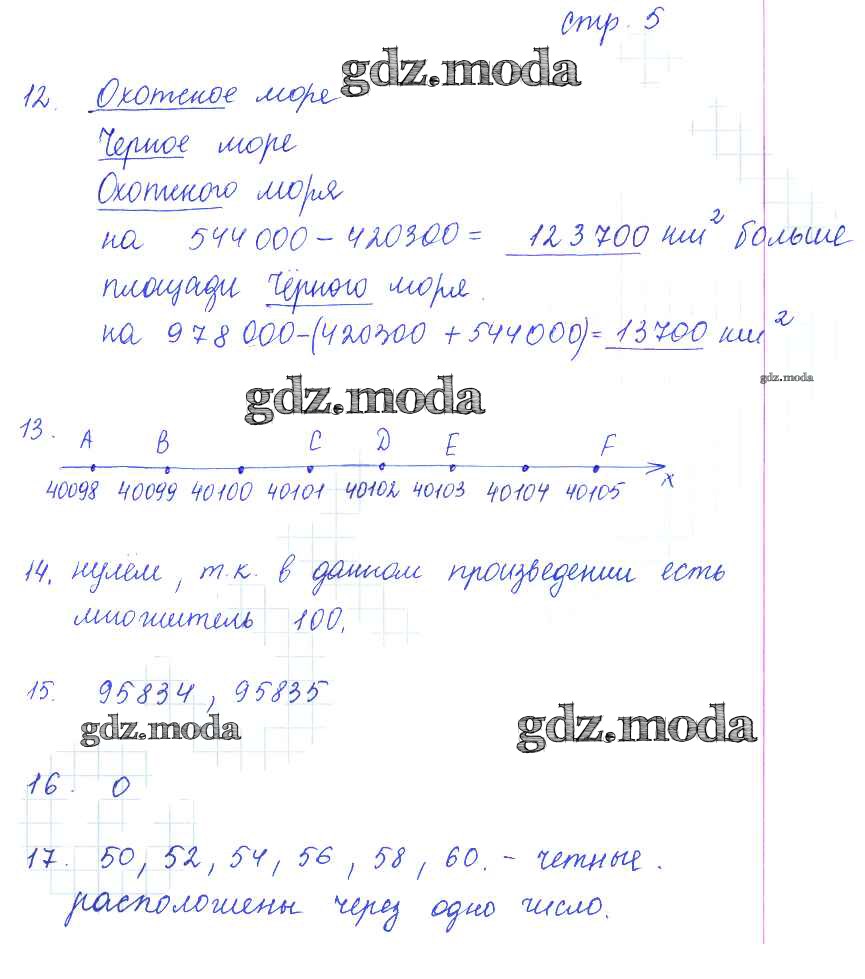 стр. 5
gdz.moda
12. Охотское море
Черное море
Охотского моря
на 544 000 – 420300 = 123 700 км² больше
площади Чёрного моря.
на 978 000 – (420300 + 544000) = 13700 км²
gdz.moda
gdz.moda
13. A B C D E F
40098 40099 40100 40101 40102 40103 40104 40105 x
14. нулём, т.к. в данном произведении есть
множитель 100.
15. 95834, 95835
gdz.moda gdz.moda
16. 0
17. 50, 52, 54, 56, 58, 60. – четные.
расположены через одно число.